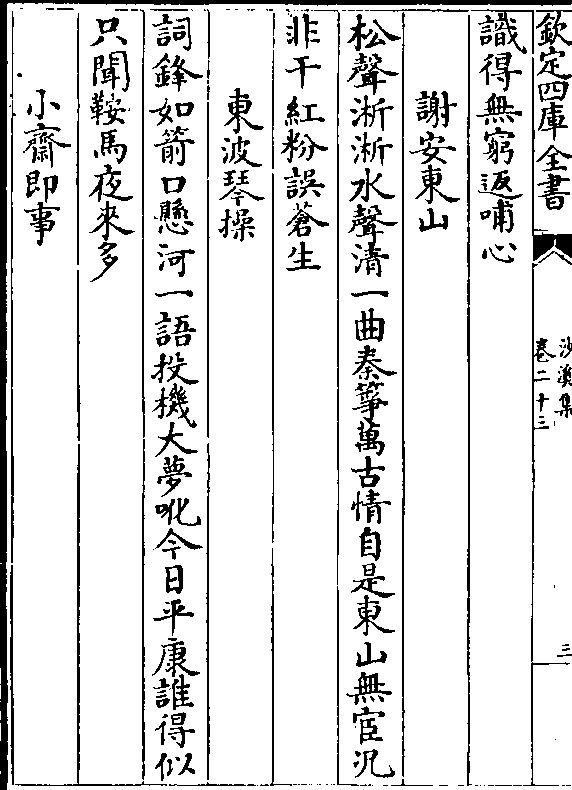 欽定四庫全書
沙溪集
卷二十三
三
識得無窮返哺心
謝安東山
松聲淅淅水聲清一曲秦箏萬古情自是東山無宦況
非干紅粉誤蒼生
東波琴操
詞鋒如箭口懸河一語投機大夢吪今日平康誰得似
只聞鞍馬夜來多
小齋即事